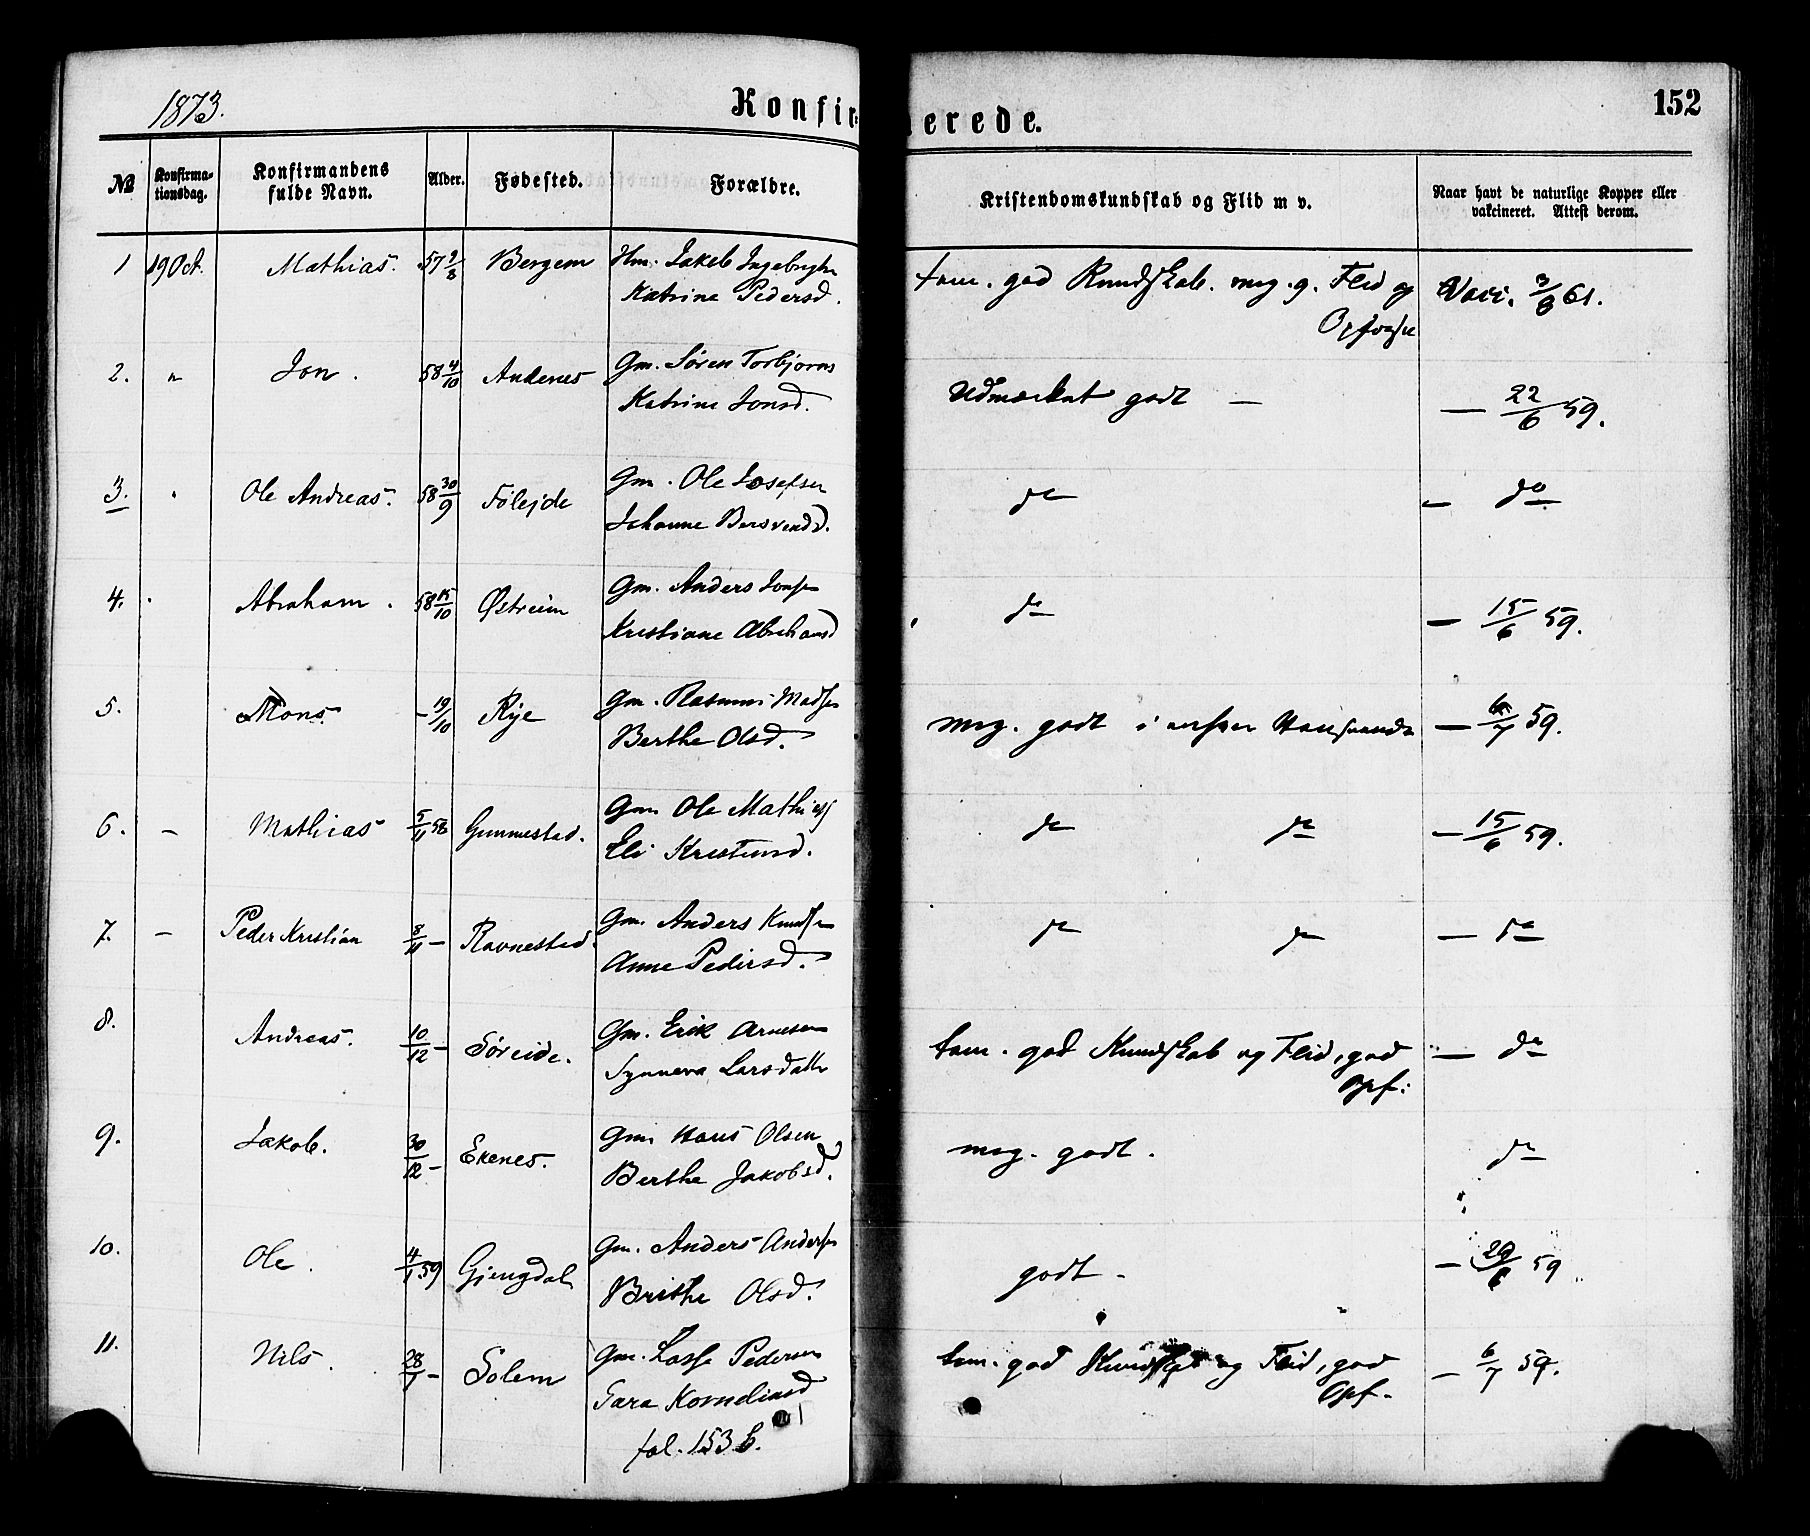 1873.
Konfir-
erede.
152
№
Konfirma-
tionsdag.
Konfirmandens
fulde Navn.
Alder.
Fødested.
Forældre.
Kristendomskundskab og Flid m v.
Naar havt de naturlige Kopper eller
vakcineret. Attest derom.
1 19 Oct. Mathias. 57 2/8 Bergem Hm. Jakob Ingebrigts
Katrine Pedersd.
tem. god Kundskab. meg. g. Flid og
Opførsel
Vacc. 3/8 61.
2. " Jon. 58 4/10 Andenes Gm. Søren Torbjørns
Katrine Jonsd.
Udmærket godt —
— 22/6 59.
3. " Ole Andreas. 58 30/9 Følejde Gm. Ole Josefsen
Johanne Bersvendd.
do
— do
4. Abraham. 58 15/10 Østreim Gm. Anders Jonsen
Kristiane Abrahamsd
do
— 15/6 59.
5. Mons — 19/10 Rye Gm. Rasmus Madsen
Berthe Olsd.
meg. godt i enhver Henseende
— 6/7 59.
6. — Mathias 5/11 58 Gummestad. Gm Ole Mathiess
Eli Kristensd.
do do
— 15/6 59.
7. — Peder Kristian 8/11 — Ravnestad. Gm. Anders Knudsen
Anne Pedersd.
do do
— do
8. Andreas. 10/12 — Søreide. Gm. Erik Arnesen
Synneva Larsdatter
tem. god Kundskab og Flid, god
Opf:
— do
9. Jakob. 30/12 — Ekenes. Gm Hans Olsen
Berthe Jakobsd.
meg. godt.
do
10. Ole. 4/1 59 Gjengdal Gm. Anders Andersen
Brithe Olsd.
godt.
— 29/6 59
11. Nils. 28/1 — Solem Gm. Lasse Pedersen
Sara Korneliusd
tem. god Kundskab og Flid, god
Opf.
— 6/7 59.
fol. 153 b.